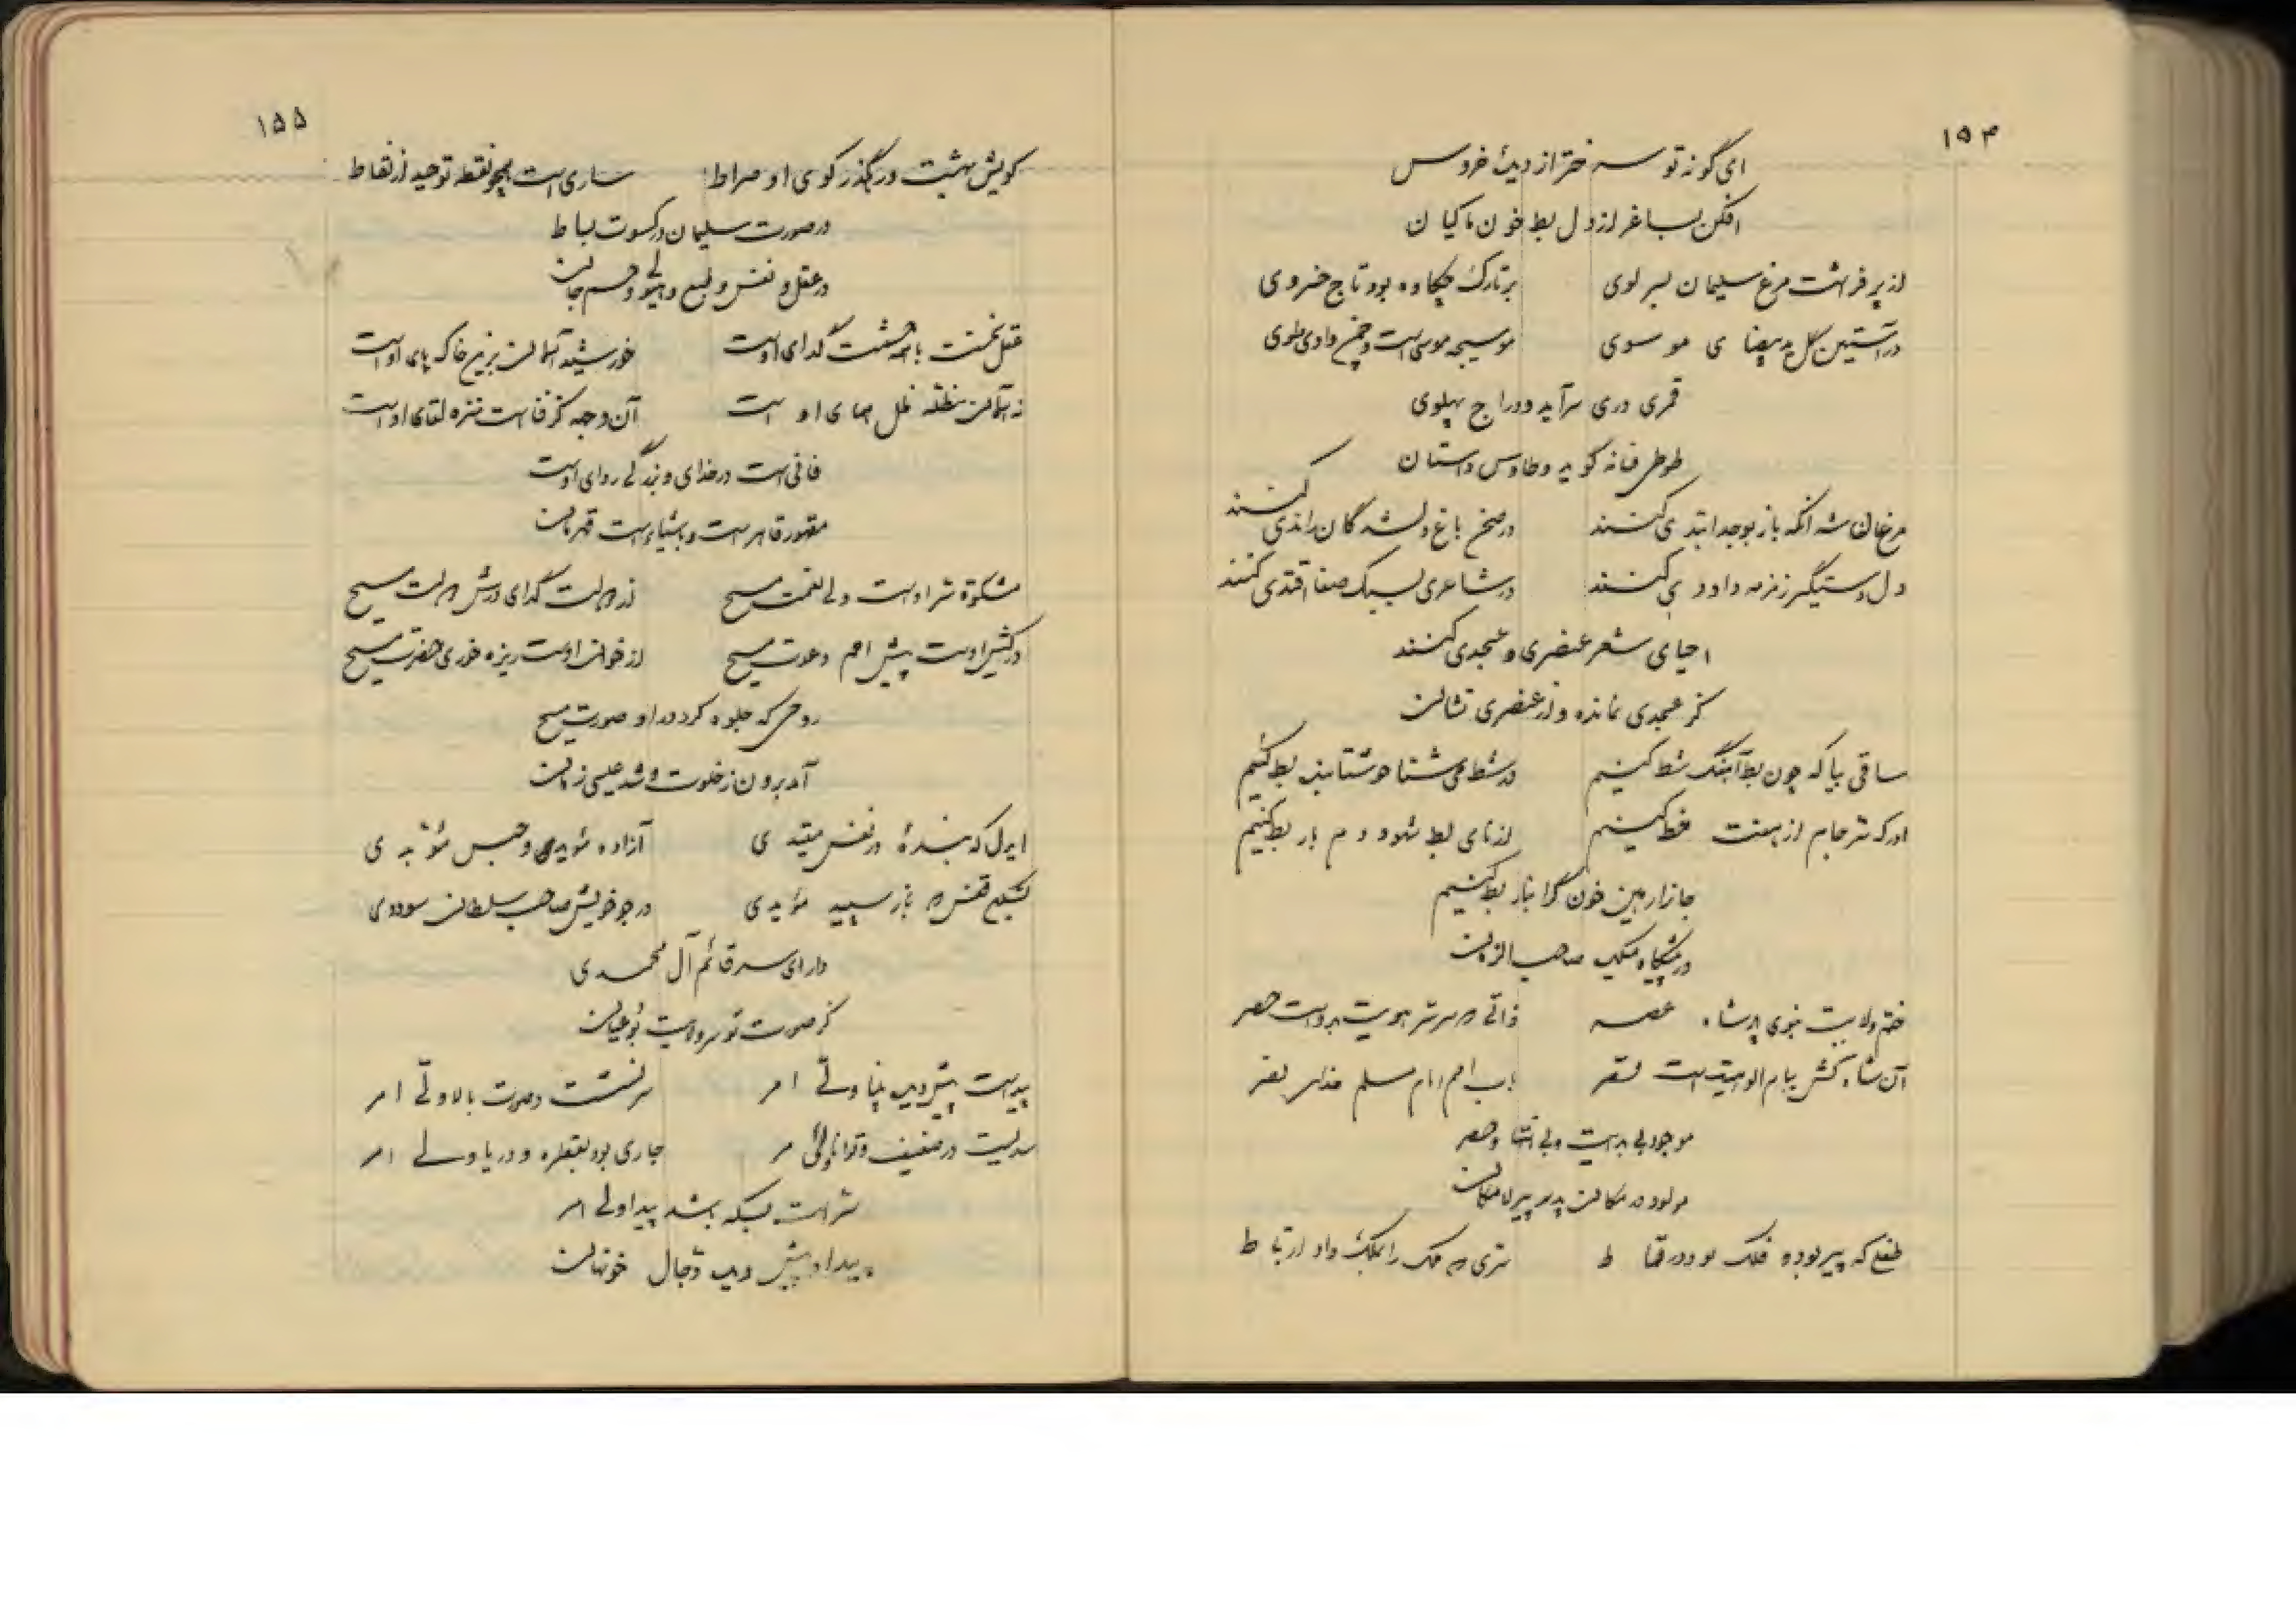 ۱۵۴
ای گونه تو سرختر از دیدهٔ خروس
افکن بساغر از دل بط خون ماکیان
از پر فرشت مرغ سلیمان بسر لوی برتارک چکاوه بود تاج خسروی
در آستین گل ید بیضای موسوی موسیجه موسی است و چمن وادی طوی
قمری دری سرآید و دراج پهلوی
طوطی فسانه گوید و طاوس داستان
مرغان شه انگه باز بوجد ابتدی کنند در صحن باغ دلشدگان را ندی کنند
دل دستیگر زمزمه داود می کنند در شاعری بسبک صفا اقتدی کنند
احیای شعر عنصری و عسجدی کنند
کز عسجدی نمانده و از عنصری نشان
ساقی بیا که چون بط آهنگ شط کنیم در شط می شنا خوشتا بط کنیم
ادرک سر جام از هفت خط کنیم از نای بط شهود دم بار بط کنیم
جانرا رهین خون گرانبار بط کنیم
در پیشگاه ملک صاحب الزمان
ختم ولایت نبوی پادشاه عصر ذاتی که سر سر هویت بدوست حصر
آن شاه کش ببام الوهیت است قصر باب امم امام مسلم خدای نصر
موجود بی بدایت و بی انتها و حصر
مولود در مکان پدر پیر لامکان
طفلی که پیر بوده فلک بود در قماط سری که ملک را بملک داد ارتباط
۱۵۵
کویش بهشت و رهگذر کوی او صراط ساری است همچو نقطه توحید از نقاط
در صورت سلیمان در کسوت بساط
در عقل و نفس و طبع و هیولی و جسم جان
عقل نخست با همه حشمت گدای اوست خورشید آسمان برین خاک پای اوست
نه آسمان مظله ظل همای اوست آن وجه کز فناست منزه لقای اوست
فانی است در خدای و بزرگی ردای اوست
مقهور قاهر است و بشیاء است قهرمان
مشکوة سر اوست ولی نعمت مسیح از دولت گدای درش دولت مسیح
در کیش اوست پیش امم دعوت مسیح از خوان اوست ریزه خوری حضرت مسیح
روحی که جلوه کرد در او صورت مسیح
آمد برون ز خلوت و شد عیسی زمان
ایدل که بندهٔ در نفس مقیدی آزاده شو بدی و حبس مؤبدی
بشکن قفس که باز سپید مؤیدی در جو خویش صاحب سلطان سوددی
دارای سر قائم آل محمدی
کز صورت تو سر ولایت بود عیان
پیداست پیش دید پنها ولی امر سر نشست و صوت بالا ولی امر
سریست در ضعیف و توانا ولی امر جاری بود بقطره و دریا ولی امر
سر است بسکه باشد پیدا ولی امر
پیدا و پیش دیده دجال خونهان